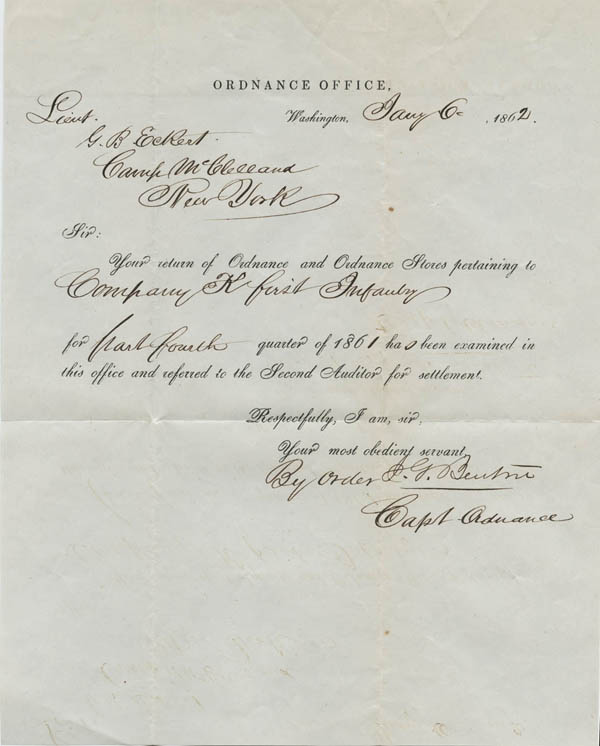 ORDNANCE OFFICE,
Washington, Jany 6 1862.
Lieut.
G. B Eckert
Camp McClelland
New York
Sir:
Your return of Ordnance and Ordnance Stores pertaining to
Company K first Infantry
for part fourth quarter of 1861 has been examined in
this office and referred to the Second Auditor for settlement.
Respectfully, I am, sir,
Your most obedient servant,
By order J. G. Benton
Capt Ordnance